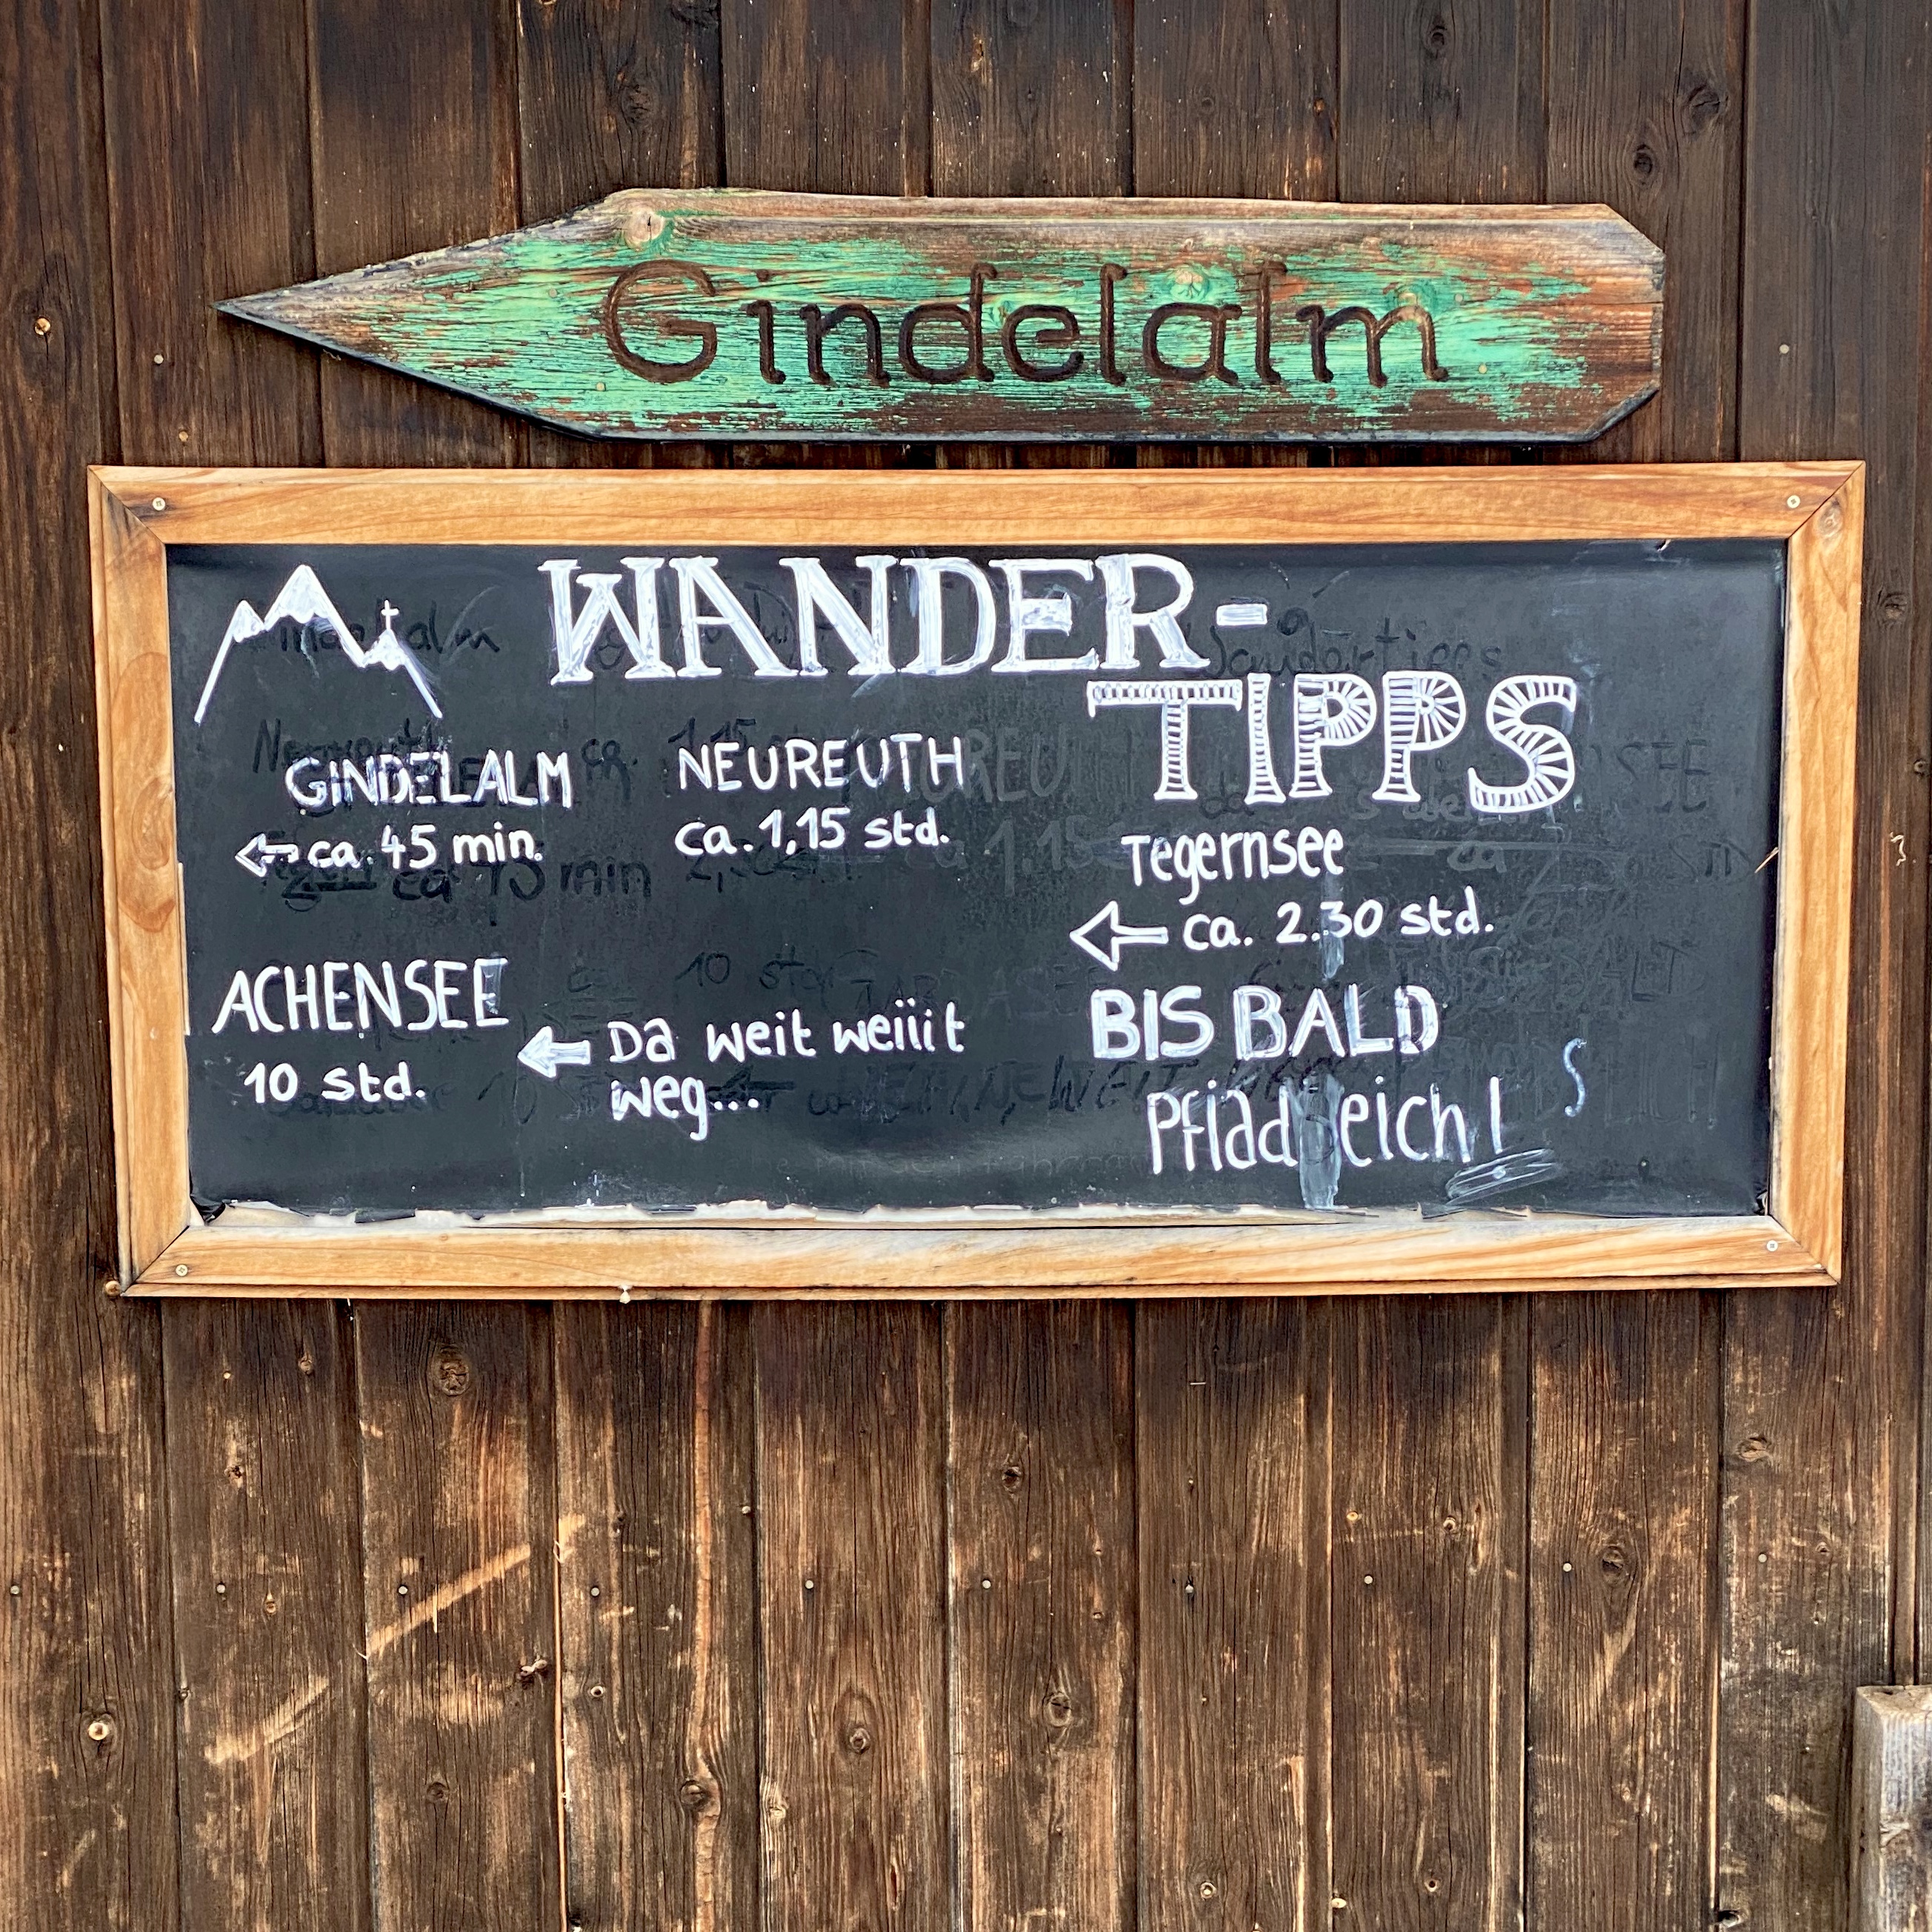 Gindelalm
WANDER-
TIPPS
GINDELALM
ca. 45 min.
NEUREUTH
ca. 1,15 std.
Tegernsee
ca. 2.30 std.
ACHENSEE
10 std.
Da weit weiiit
weg...
BIS BALD
Pfiad eich!